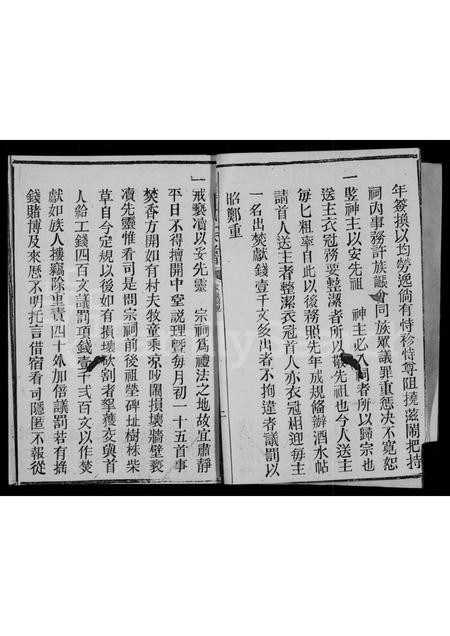 年簽換以均勞逸倘有恃衫恃尊阻撓滋鬧把持
祠內事務許族長會同族眾議罪重惩决不寬恕
一竪神主以安先祖 神主必入祠者所以歸宗也
送主衣冠務要整潔者所以敬先祖也今人送主
每匕粗率自此以後務照先年成規備辦酒水帖
請首人送主者整潔衣冠首人亦衣冠相迎每主
一名出焚獻錢壹千文多出者不拘違者議罰以
昭鄭重
一戒褻瀆以妥先靈 宗祠為禮法之地故宜肅靜
平日不得擅開中堂説理暨每月初一十五首事
焚香方開如有村夫牧童乘凉吵鬧損壞牆壁褻
瀆先靈惟看司是問宗祠前後祖塋碑址樹株柴
草自今定規以後如有損壞砍割者拏獲交與首
人給工錢四百文議罰項錢壹千弍百文以作焚
獻如族人摟竊除重責四十外加倍議罰若有搚
錢賭博及來歷不明托言借宿看司隱匿不報從